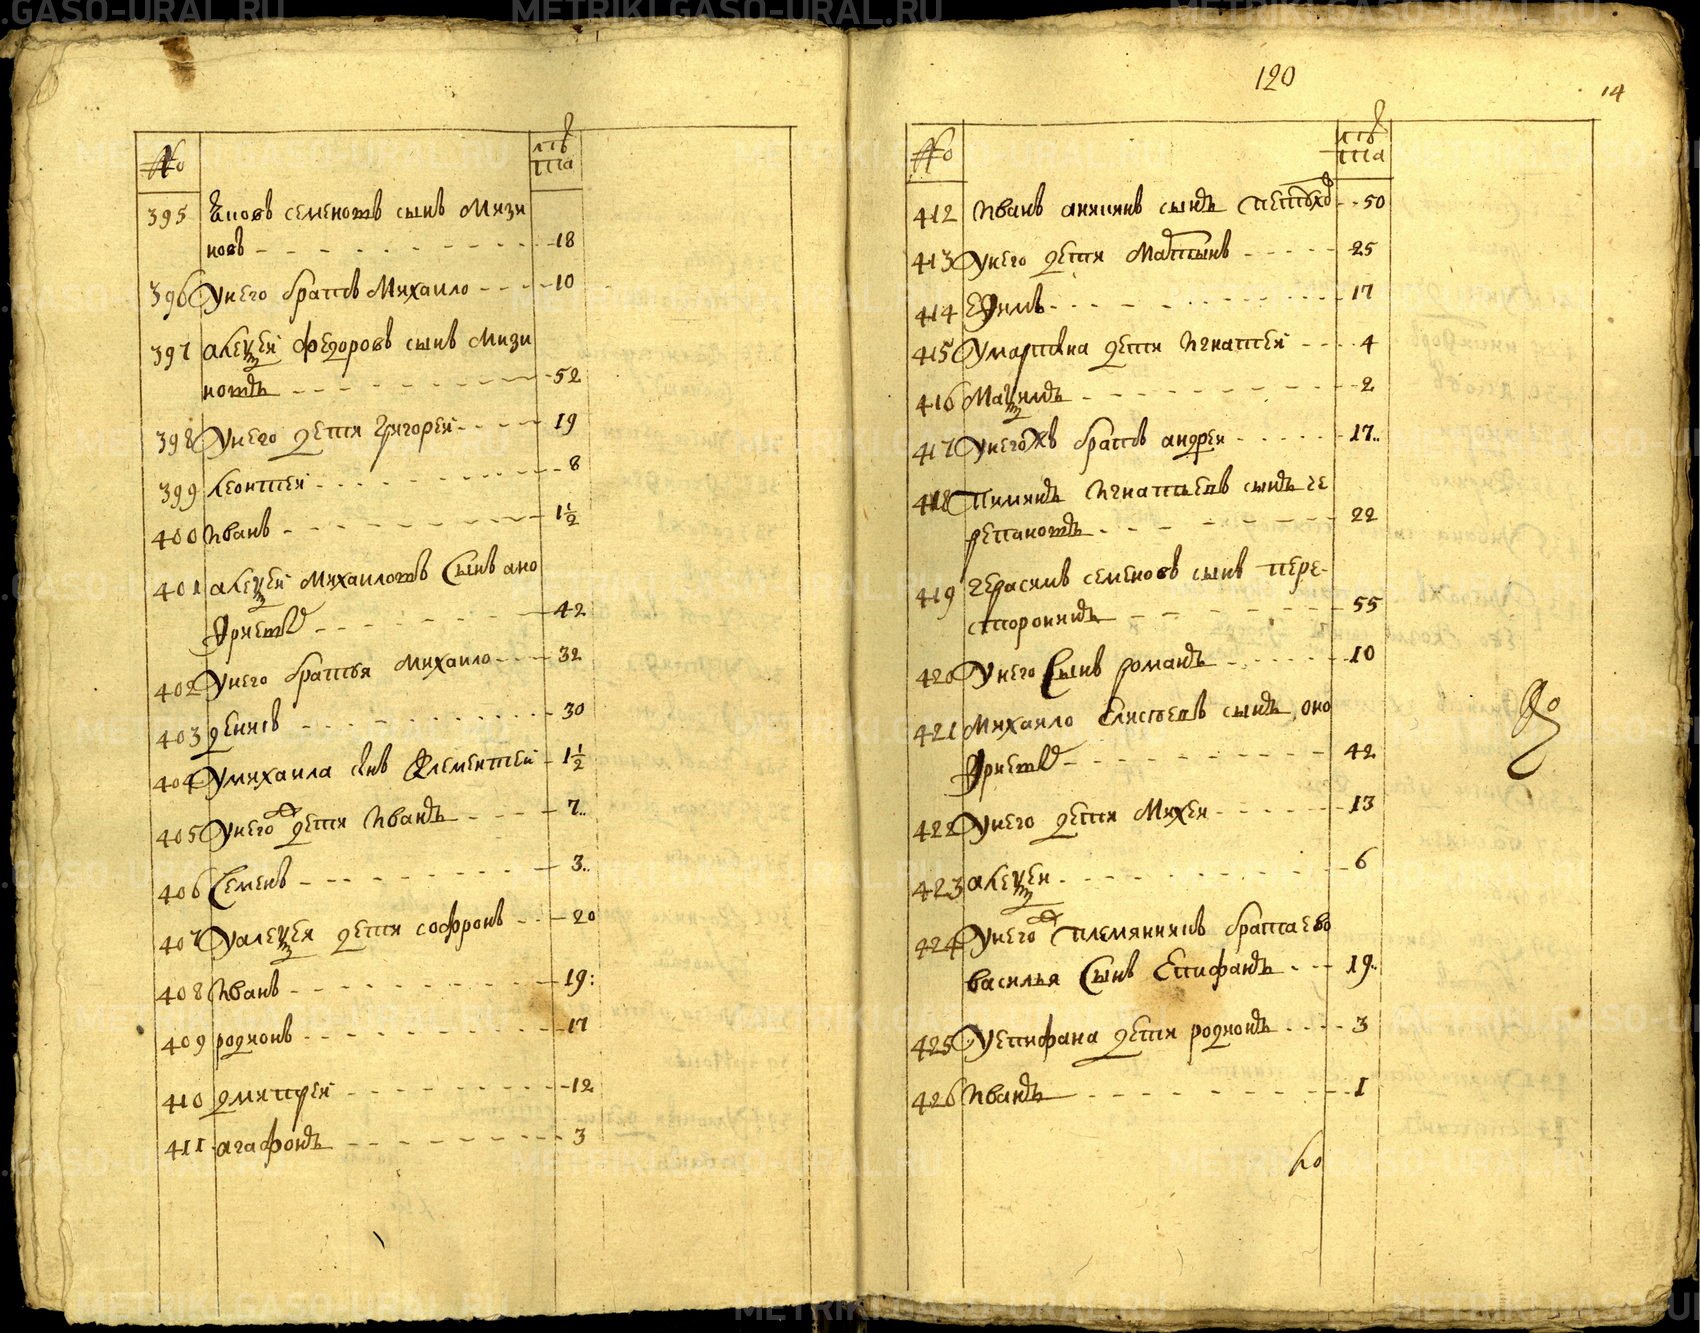 120
14
№
лѣта
395 Яковъ семеновъ сынъ Мизи
новъ 18
396 Унего братъ Михаило 10
397 алеѯей Федоровъ сынъ Мизи
новъ 52
398 Унего дети Григорей 19
399 леонтей 8
400 Иванъ 1½
401 алеѯей михаиловъ Сынъ ано
фриевъ 42
402 Унего братья михаило 32
403 денисъ 30
404 Умихаила снъ Клементей 1½
405 Унего дети Иванъ 7
406 Семенъ 3
407 Уалеѯея дети софронъ 20
408 Иванъ 19
409 родионъ 17
410 дмитрей 12
411 агафонъ 3
№
лѣта
412 Иванъ аникинъ сынъ 50
413 Унего дети Мартынъ 25
414 Ефимъ 17
415 Умартына дети Игнатей 4
416 Маѯимъ 2
417 Унегожъ братъ андрей 17
418 Пиминъ Игнатьевъ сынъ че
репановъ 22
419 Герасимъ семеновъ сынъ пере-
сторонинъ 55
420 Унего Сынъ романъ 10
421 Михаило Елисѣевъ сынъ оно
фриевъ 42
422 Унего дети Михей 13
423 алеѯей 6
424 Унего племянникъ брата ево
василья Сынъ Епифанъ 19
425 Уепифана дети родионъ 3
426 Иванъ 1